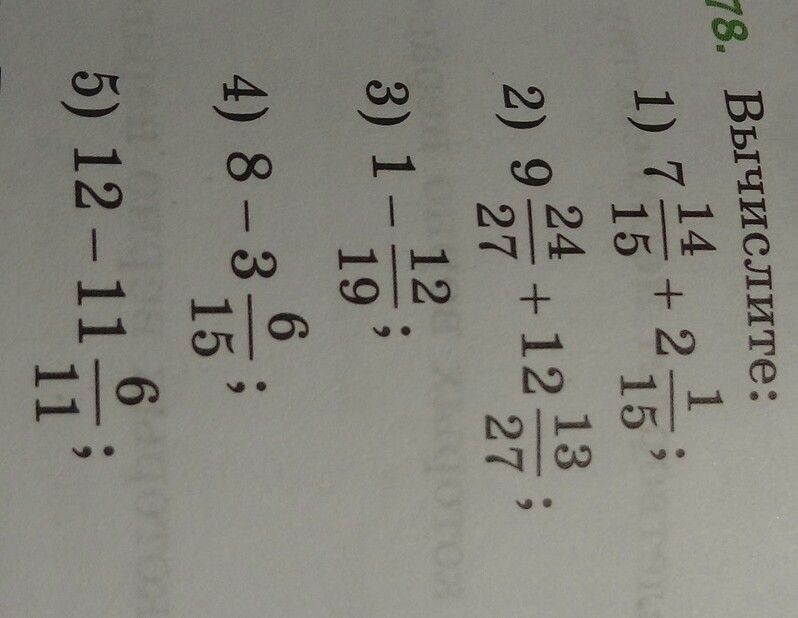 78. Вычислите:
1) 7 14/15 + 2 1/15;
2) 9 24/27 + 12 13/27;
3) 1 − 12/19;
4) 8 − 3 6/15;
5) 12 − 11 6/11;